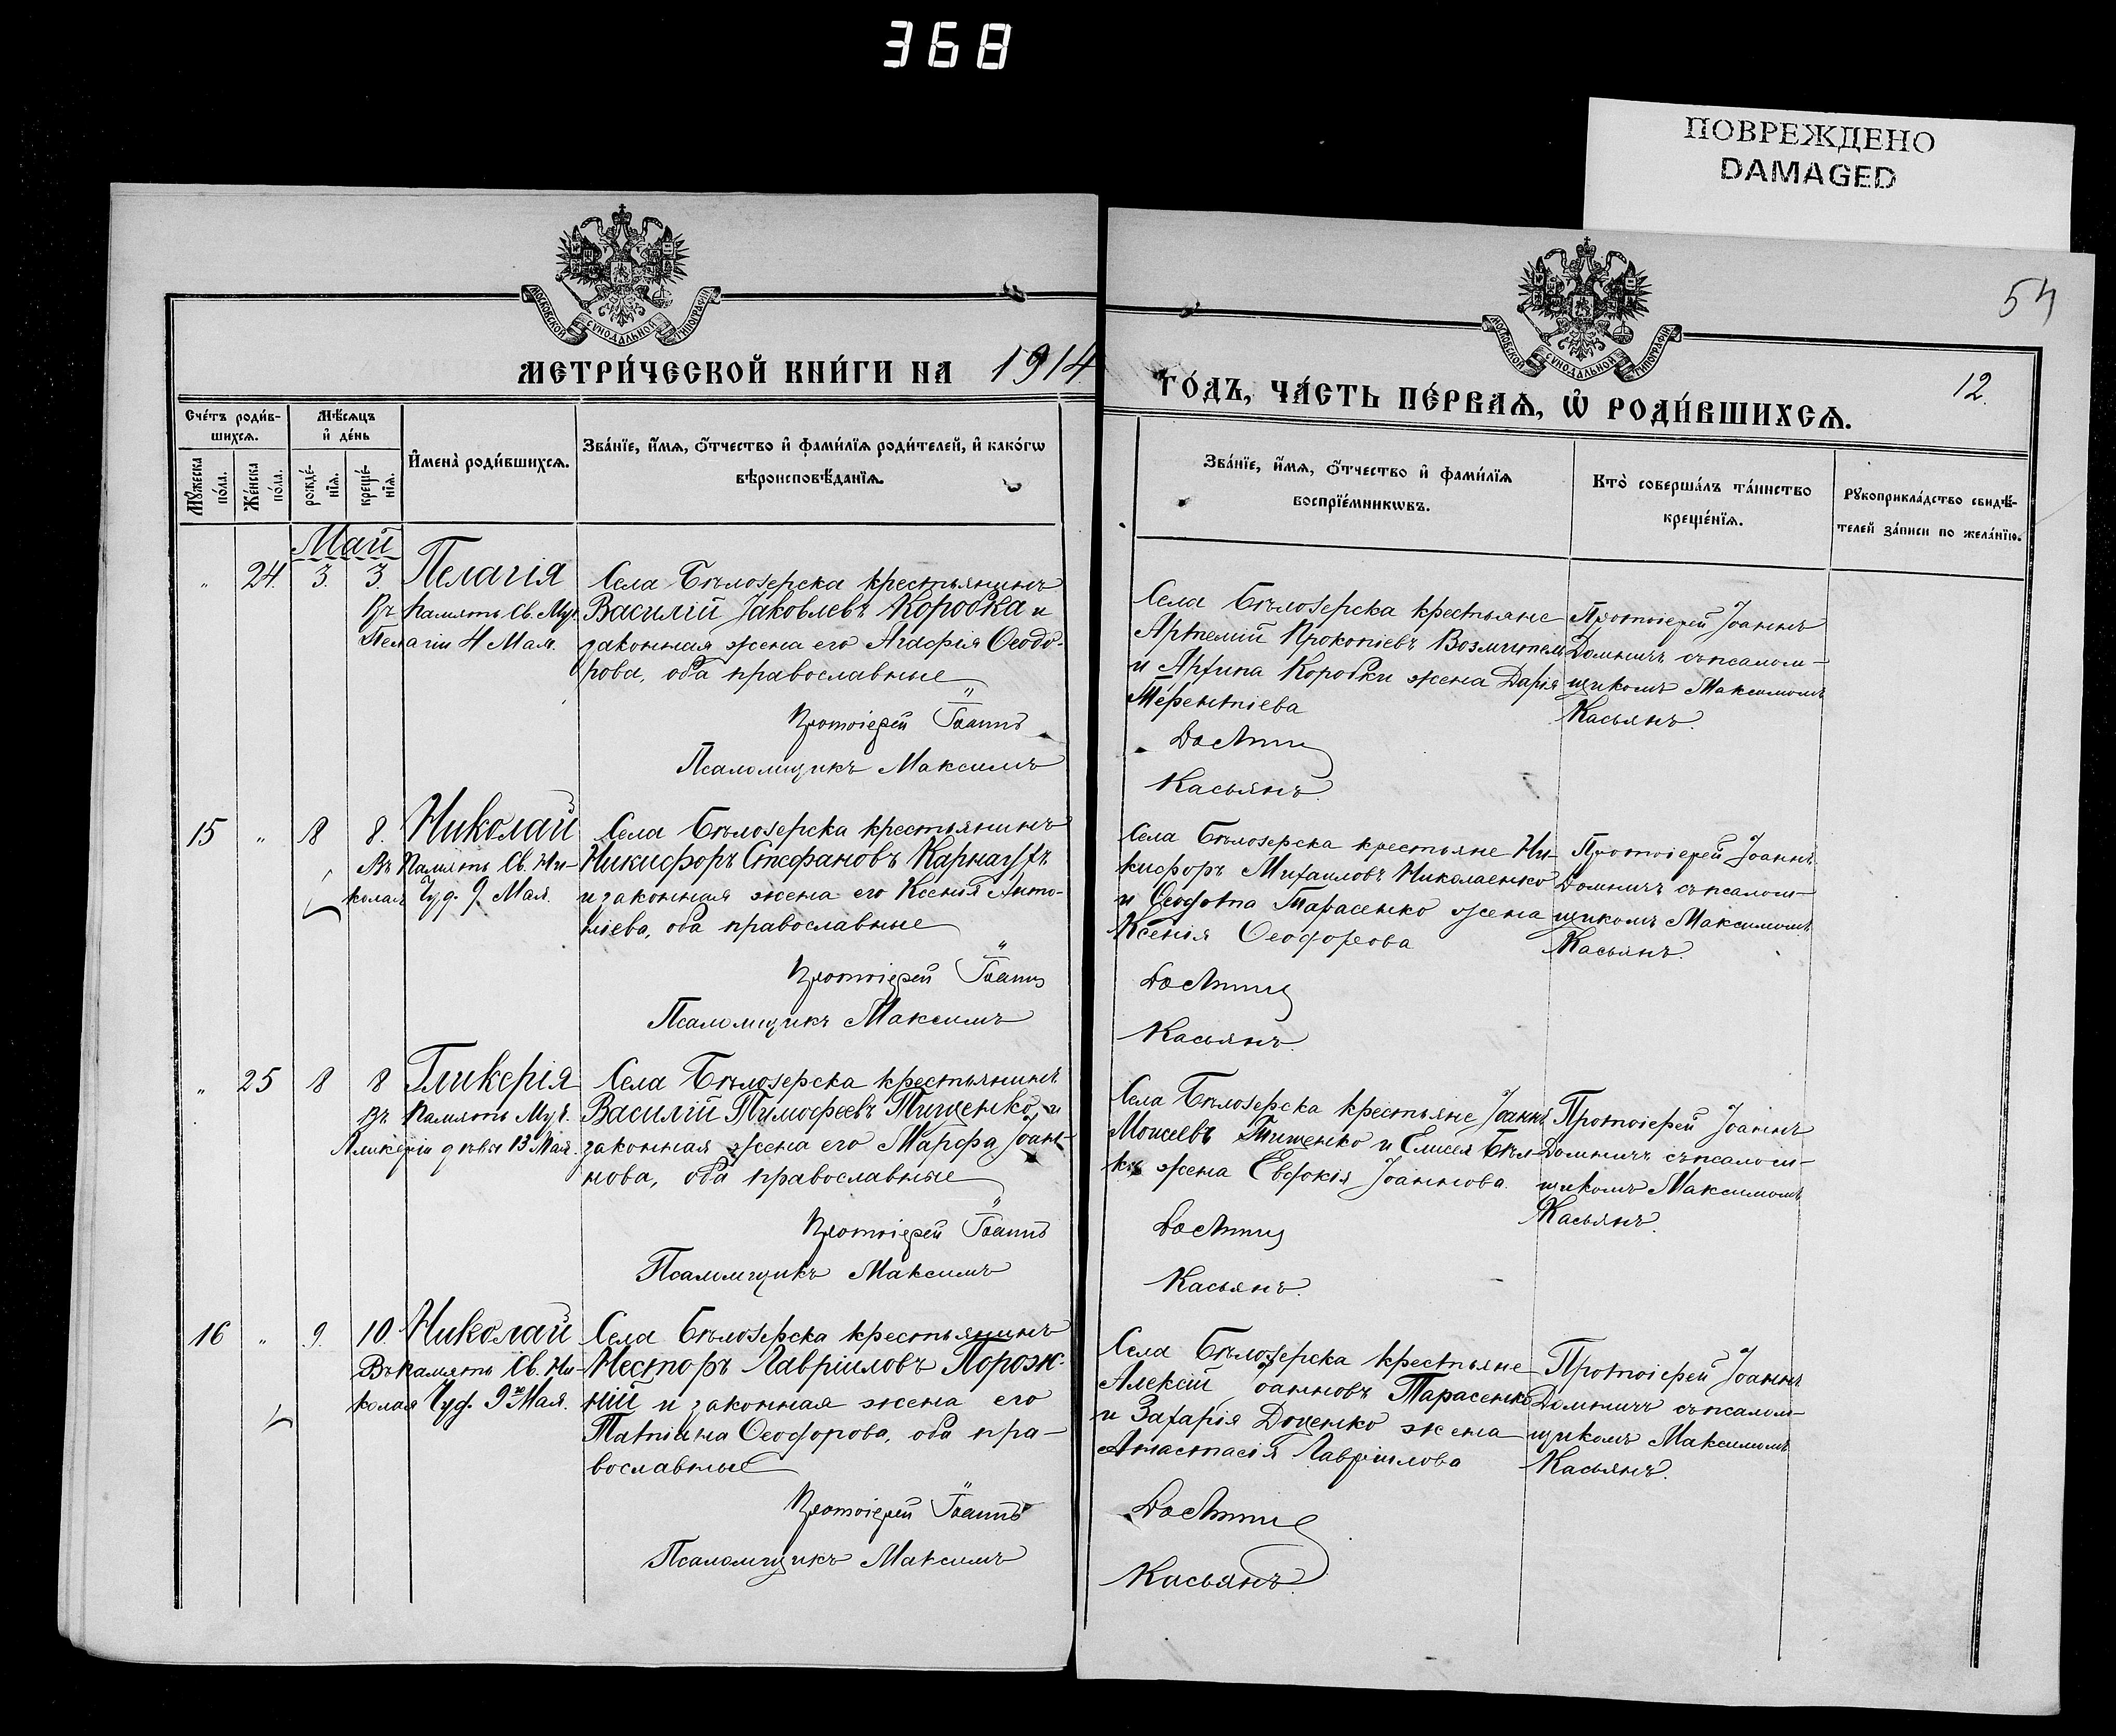 368
ПОВРЕЖДЕНО
DAMAGED
54
12.
МОСКОВСКОЙ СУНОДАЛЬНОЙ ТИПОГРАФІИ
МОСКОВСКОЙ СУНОДАЛЬНОЙ ТИПОГРАФІИ
МЕТРИ́ЧЕСКОЙ КНИ́ГИ НА 1914
ГО́ДЪ, ЧА́СТЬ ПЕ́РВАѦ, Ѽ РОДИ́ВШИХСѦ.
Сче́тъ роди́в-
шихсѧ.
Мѣ́сѧцъ
и҆ де́нь
Мꙋ́жеска
по́ла.
Же́нска
по́ла.
рожде́-
нїѧ.
креще́-
нїѧ.
И҆мена̀ роди́вшихсѧ.
Зва́нїе, и҆́мѧ, ѻ҆́тчество и҆ фами́лїѧ роди́телей, и҆ како́гѡ
вѣроисповѣ́данїѧ.
Зва́нїе, и҆́мѧ, ѻ҆́тчество и҆ фами́лїѧ
воспрїе́мникѡвъ.
Кто̀ соверша́лъ та́инство
креще́нїѧ.
Рꙋкоприкла́дство свидѣ́-
телей за́писи по жела́нїю.
Май
" 24. 3. 3. Пелагія
Въ память Св. Муч.
Пелагіи 4 Мая.
Села Бѣлозерска крестьянинъ
Василій Іаковлевъ Коробка и
законная жена его Агафія Ѳеодо-
рова, оба православные
Протоіерей Іоаннъ
Псаломщикъ Максимъ
Села Бѣлозерска крестьяне
Артемій Прокопіевъ
и Коробки жена Дарія
Терентіева
Домничъ
Касьянъ.
Протоіерей Іоаннъ
Домничъ съ псалом-
щикомъ Максимомъ
Касьянъ.
15 " 8 8. Николай
Въ Память Св. Ни-
колая Чуд. 9 Мая.
Села Бѣлозерска крестьянинъ
Никифоръ Стефановъ Карнаухъ
и законная жена его Ксенія Анто-
ніева, оба православные
Протоіерей Іоаннъ
Псаломщикъ Максимъ
Села Бѣлозерска крестьяне Ни-
кифоръ Михаиловъ Николаенко
и Ѳеодота Тарасенко жена
Ксенія Ѳеодорова
Домничъ
Касьянъ.
Протоіерей Іоаннъ
Домничъ съ псалом-
щикомъ Максимомъ
Касьянъ.
" 25 8 8 Гликерія
Въ Память Муч.
Гликеріи дѣвы 13 Мая.
Села Бѣлозерска крестьянинъ
Василій Тимофеевъ Тищенко, и
законная жена его Марфа Іоан-
нова, оба православные
Протоіерей Іоаннъ
Псаломщикъ Максимъ
Села Бѣлозерска крестьяне Іоаннъ
Моисеевъ Тищенко и Елисея
жена Евдокія Іоаннова.
Домничъ
Касьянъ.
Протоіерей Іоаннъ
Домничъ съ псалом-
щикомъ Максимомъ
Касьянъ.
16 " 9. 10. Николай
Въ память Св. Ни-
колая Чуд. 9го Мая.
Села Бѣлозерска крестьянинъ
Несторъ Лавріиловъ Порож-
ній и законная жена его
Татіана Ѳеодорова, оба пра-
вославные
Протоіерей Іоаннъ
Псаломщикъ Максимъ
Села Бѣлозерска крестьяне
Алексій Іоанновъ Тарасенко
и Захарія Доценко жена
Анастасія Лавріилова
Домничъ
Касьянъ.
Протоіерей Іоаннъ
Домничъ съ псалом-
щикомъ Максимомъ
Касьянъ.